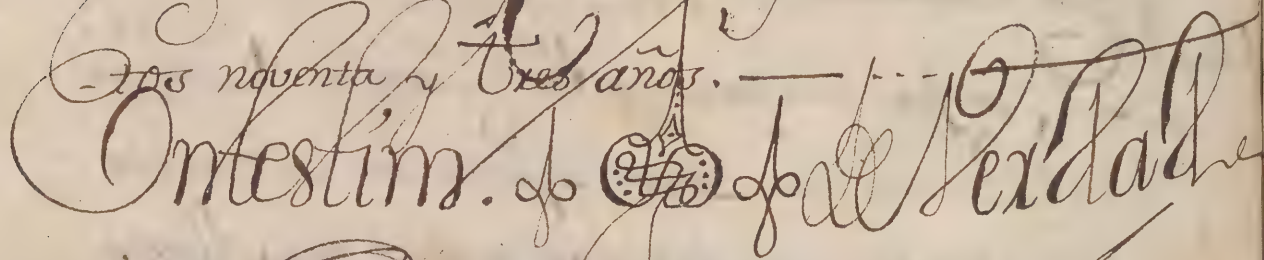 -tos noventa y tres años.
Entestim. de Verdad